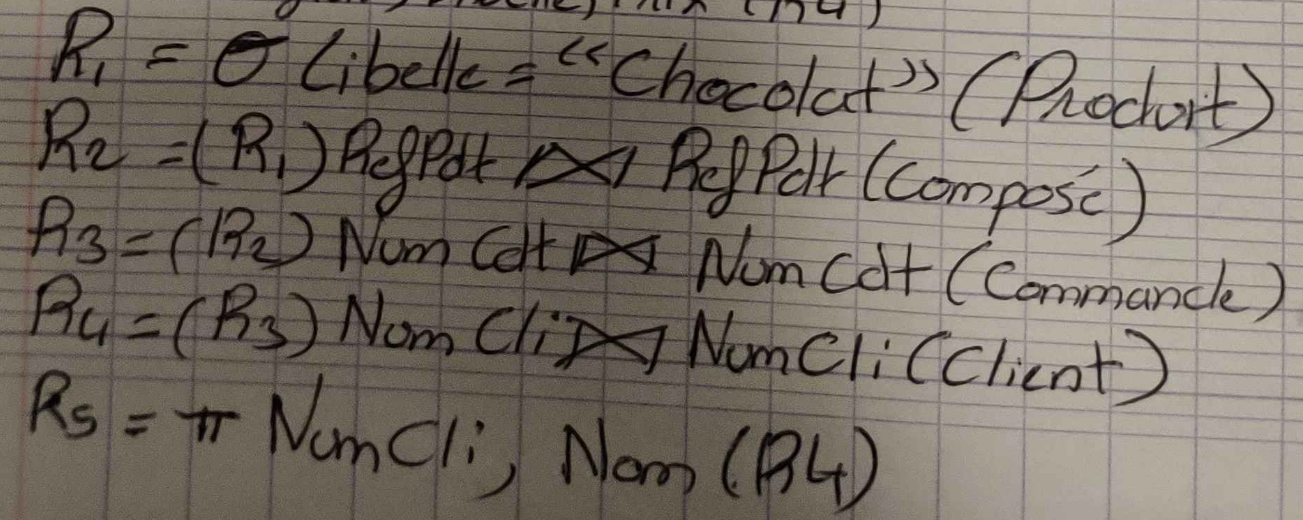 (R4)
R1 = σ Libelle = «Chocolat» (Produit)
R2 = (R1) RefPdt ⋈ RefPdt (Composé)
R3 = (R2) Num Cdt ⋈ Num Cdt (Commande)
R4 = (R3) Num Cli ⋈ Num Cli (Client)
R5 = π Num Cli, Nom (R4)